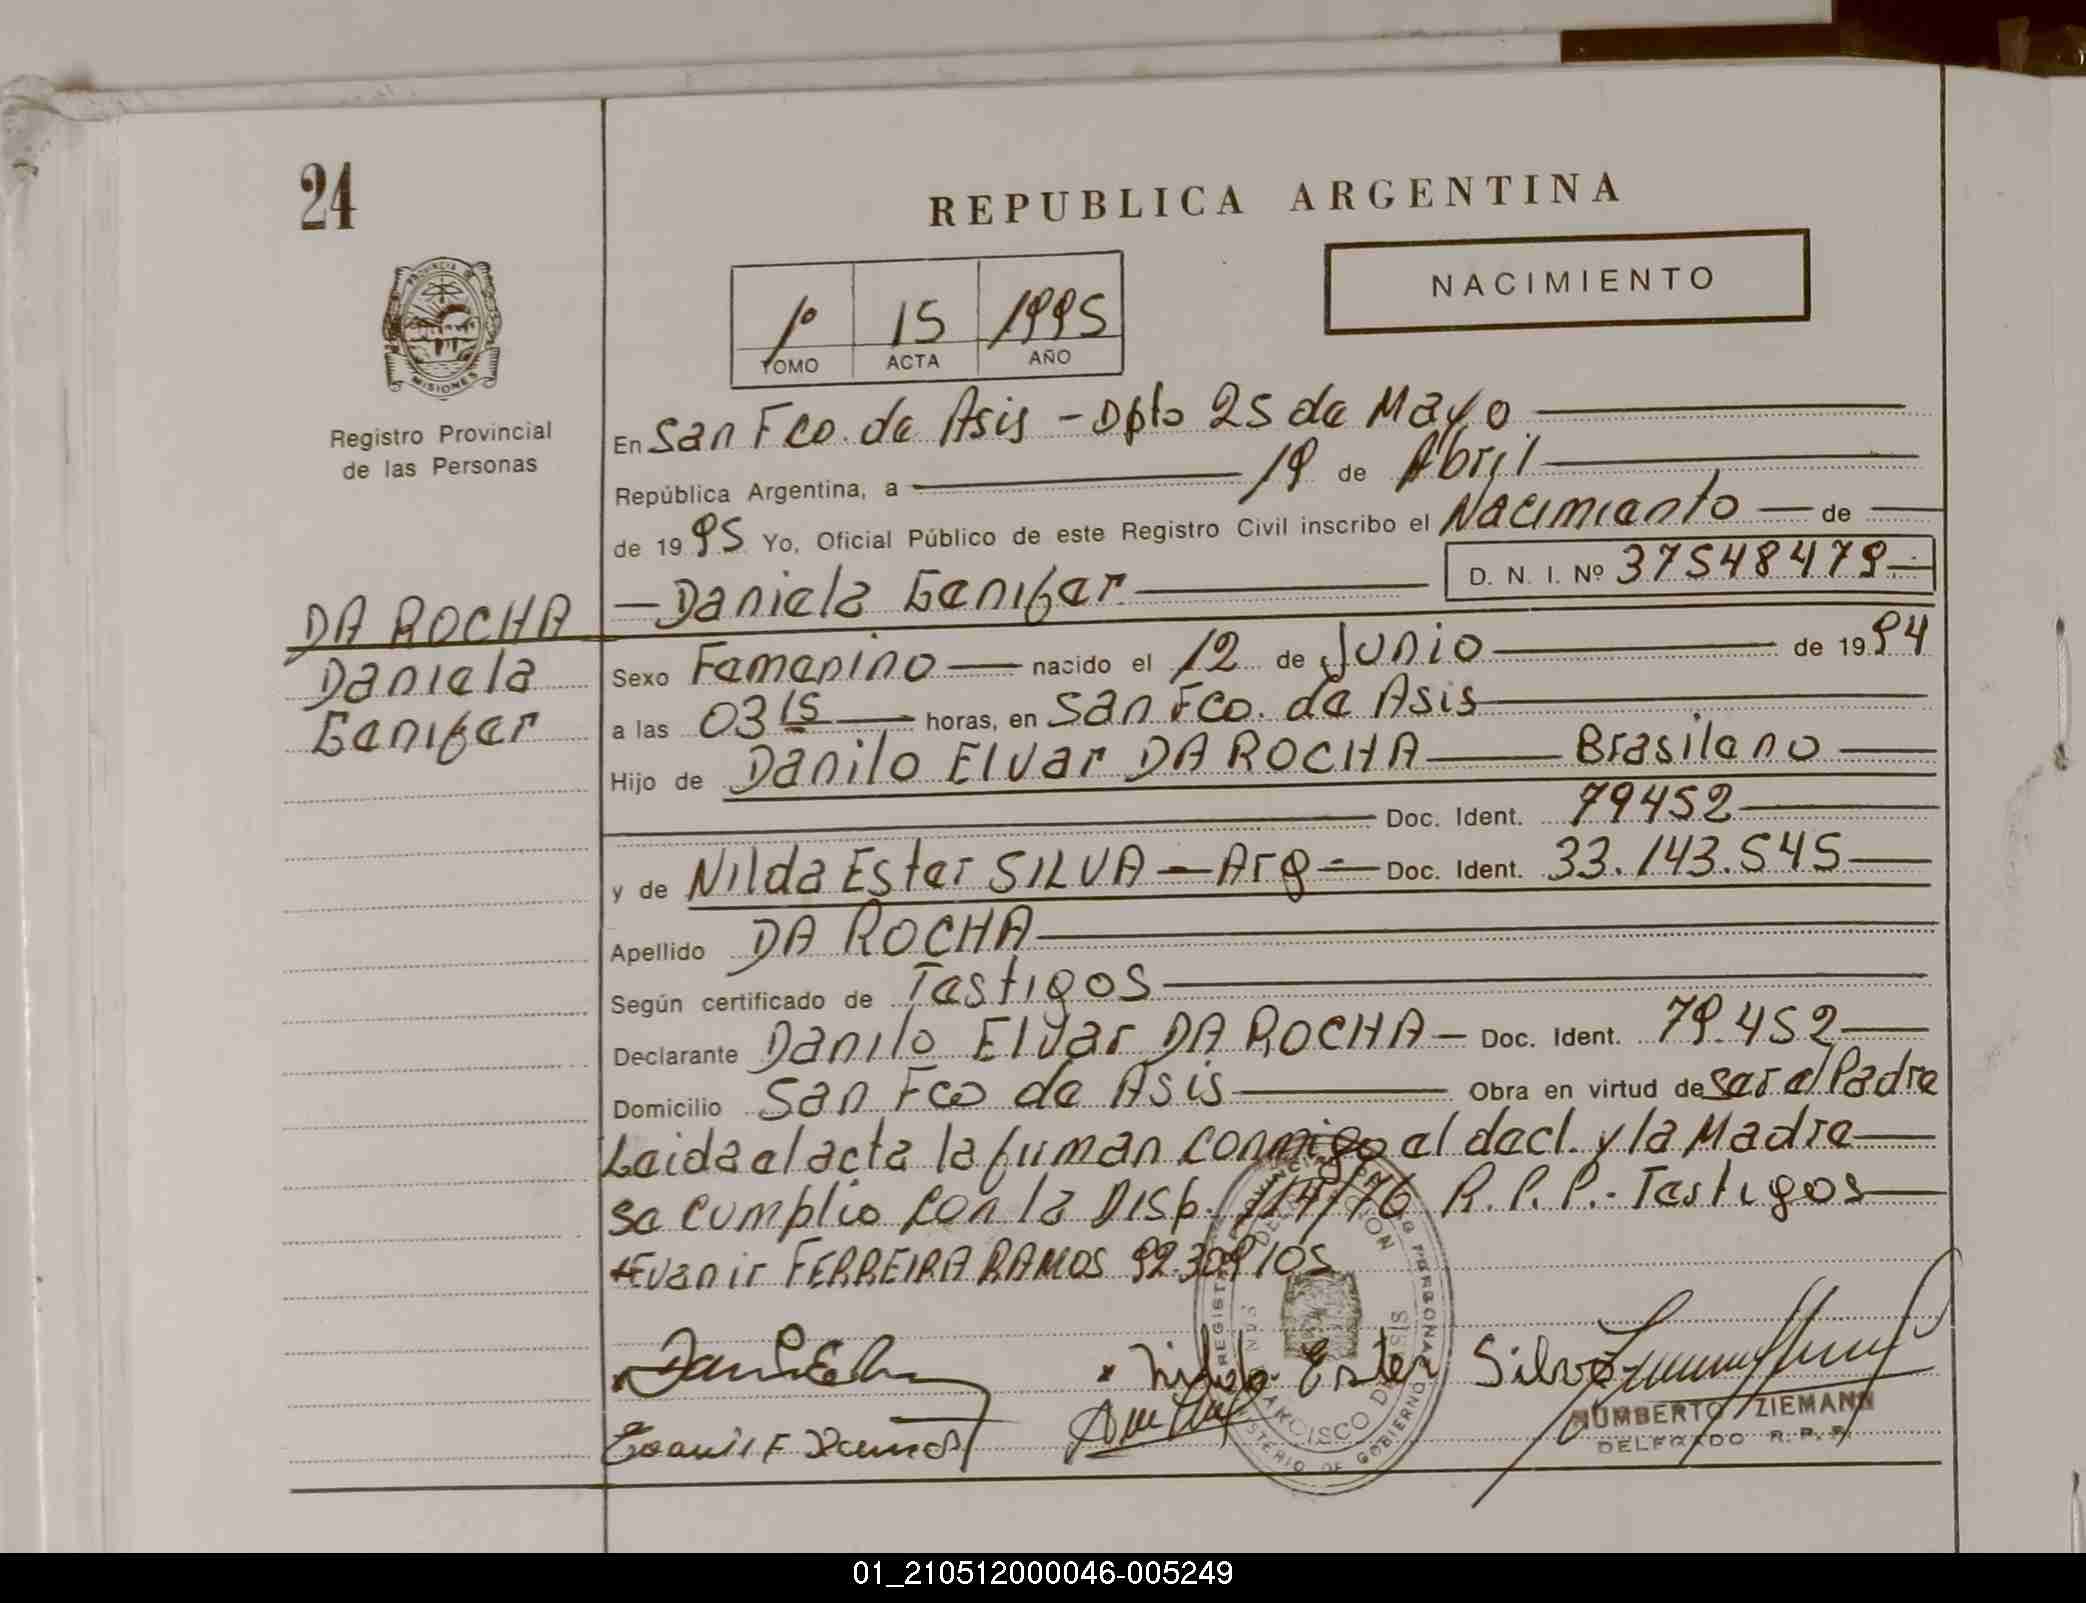 24
REPUBLICA ARGENTINA
NACIMIENTO
1º 15 1995
TOMO ACTA AÑO
PROVINCIA DE
MISIONES
Registro Provincial
de las Personas
En San Fco. de Asis - Dpto 25 de Mayo
República Argentina, a 19 de Abril
de 1995 Yo, Oficial Público de este Registro Civil inscribo el Nacimiento de
Daniela Genifer D. N. I. Nº 37548479
DA ROCHA
Daniela
Genifer
Sexo Femenino nacido el 12 de Junio de 1994
a las 03 15 horas, en San Fco. de Asis
Hijo de Danilo Elvar DA ROCHA Brasileno
Doc. Ident. 79452
y de Nilda Ester SILVA - Arg - Doc. Ident. 33.143.545
Apellido DA ROCHA
Según certificado de Testigos
Declarante Danilo Elvar DA ROCHA - Doc. Ident. 79.452
Domicilio San Fco de Asis Obra en virtud de ser el Padre
Leida el acta la firman conmigo el decl. y la Madre
se cumplio con la Disp. 114/76 R.P.P.- Testigos
Evanir FERREIRA RAMOS 92.309105
Nilda Ester Silva
HUMBERTO ZIEMANN
DELEGADO R.P.P.
01_210512000046-005249